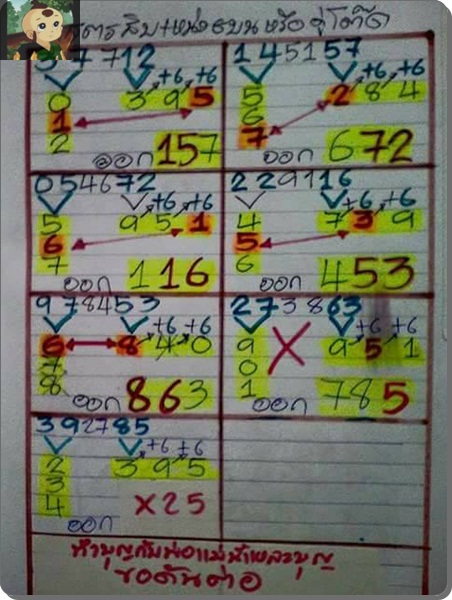 สิบ+หน่วยบน หรือ คู่โต๊ด
7712
+6 +6
0 3 9 5
1
2
ออก 157
145157
+6 +6
5 2 8 4
6
7
ออก 672
054672
+6 +6
5 9 5 1
6
7
ออก 116
229116
+6 +6
4 7 3 9
5
6
ออก 453
978453
+6 +6
6 8 4 0
7
8
ออก 863
273863
+6 +6
9 X 9 5 1
0
1
ออก 785
392785
+6 +6
2 3 9 5
3
4 X25
ออก
ทำบุญกับพ่อแม่
ขอดันต่อ